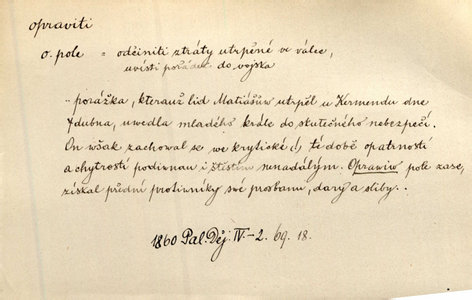 opraviti
o. pole = odčiniti ztráty utrpěné ve válce,
uvésti pořádek do vojska
.. porážka, kterauž lid Matiášůw utrpěl u Kermendu dne
7 dubna, uwedla mladého krále do skutečného nebezpečí.
On wšak zachowal se we krytické (!) té době opatrností
a chytrostí podiwnau i štěstím nenadálým. Oprawiw pole zase,
získal přední protiwníky swé prosbami, dary a sliby..
1860 Pal. Děj. IV-2. 69. 18.